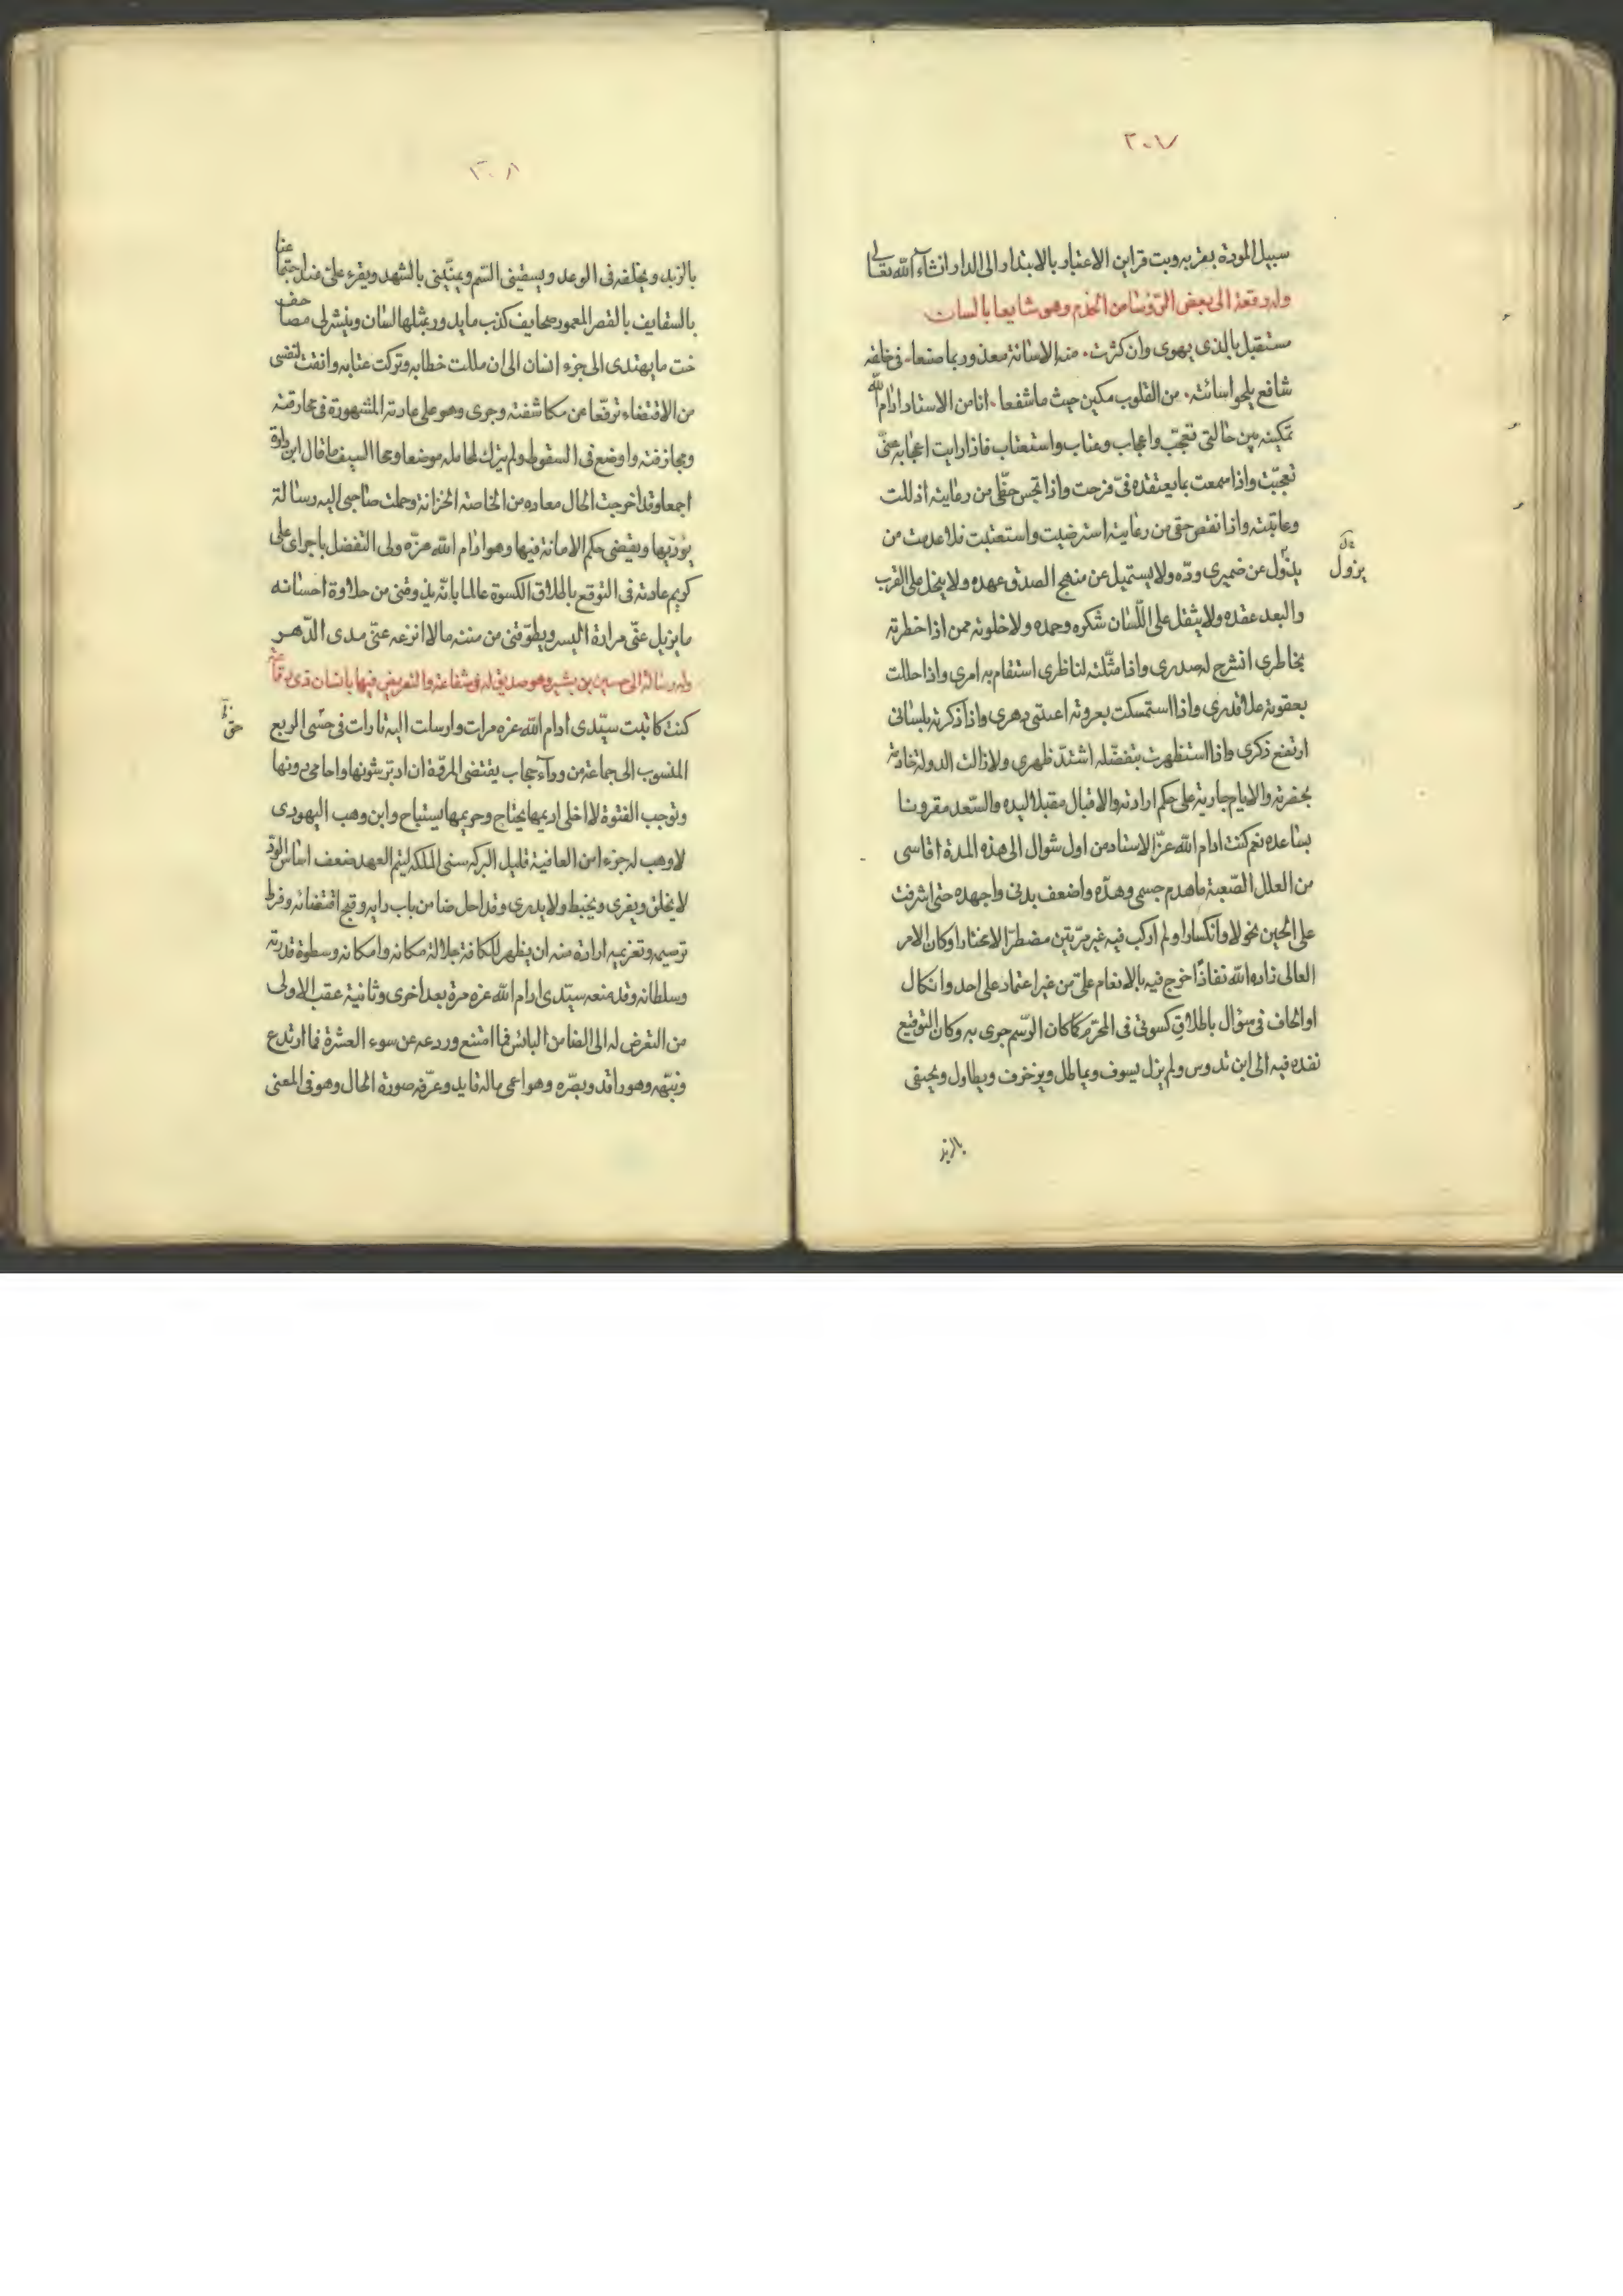 ٣٠٧
سبيل المودة بقربه وبت قراين الاعتبار بالابتدار الى الدار انشاء الله تعالى
وله رقعة الى بعض الرؤسا من الخدم وهو
مستقبل بالذى يهوى وان كثرت منه الاسائة معذور بما صنعا فى خلقه
شافع يمحو اسائته من القلوب مكين حيث ما شفعا انا من الاستاد ادام الله
تمكينه بين حالتى تعجب واعجاب وعتاب واستعتاب فاذا رايت اعجابه عنى
تعجبت واذا سمعت بما يعتقده فىّ فرحت واذا حقى من رعايته
وعاتبته واذا نقص حقى من رعايته استرضيت واستعتبت فلا عدمت من
عن ضميرى ودّه ولا يستميل عن منهج الصدق عهده ولا على القرب
يزول
والبعد عقده ولا يثقل على اللسان شكره وحمده ولا خلوته ممن اذا خطرته
بخاطرى انشرح له صدرى واذا مثلته لناظرى استقام به امرى واذا حللت
بعقوته علا قدرى واذا استمسكت بعروته دهرى واذا ذكرته بلسانى
ارتفع ذكرى واذا استظهرت بتفضله اشتد ظهرى ولا زالت الدولة
بحضرته والايام جارية على حكم ارادته والاقبال مقبلا اليه والسعد مقرونا
بساعده نعم كنت ادام الله عز الاستاد من اول شوال الى هذه المدة اقاسى
من العلل الصعبة ما هدم جسمى وهدّه واضعف بدنى واجهده حتى اشرفت
على الحين نحولا وانكسارا ولم اركب فيه غير مرتين مضطرا لا مختارا وكان الامر
العالى زاده الله نفاذا خرج فيه بالانعام علىّ من غير اعتماد على احد واتكال
او الحاف فى سؤال باطلاق كسوتى فى المحرم كما كان الرسم جرى به وكان التوقيع
نفده فيه الى ابن تدوس ولم يزل يسوف ويماطل ويزخرف ويطاول
بالزبد
٣٠٨
بالزبد ويخلفه فى الوعد ويسقينى السم ويمنينى بالشهد ويقرء علىّ
بالسقايف بالقصر المعمور صحايف كذب ما يدور بمثلها لسان وينشر لى مصاحف
ما يهتدى الى جزء انسان الى ان مللت خطابه وتركت عتابه وانفت لنفسى
من الاقتضاء ترفعا عن مكاشفته وجرى وهو على عادته المشهورة فى محارفته
ومجازفته واوضع فى السقوط ولم يترك لحامله موضعا ومحا السيف ما قال ابن دارة
اجمعا وقد اخرجت الحال معاده من الخاصة الخزانة وحملت صاحبى اليه رسالة
يؤديها ويقضى حكم الامانة فيها وهو ادام الله عزه ولى التفضل باجراى على
كريم عادته فى التوقع باطلاق الكسوة عالما بانه يذوقنى من حلاوة احسانه
ما يزيل عنى مرارة اليسر ويطوقنى من مننه ما لا انزعه عنى مدى الدهر
وله رسالة الى حسين بن بشير وهو صديق له فى شفاعة والتعريض فيها بانسان ذى رقاعة
كنت كاتبت سيدى ادام الله عزه مرات وارسلت اليه تارات فى الربع
المنسوب الى جماعة من ورآء حجاب يقتضى المرقة ان ادبر شونها واحامى دونها
وتوجب الفتوة لا اخلى اديمها يحتاج وحريمها يستباح وابن وهب اليهودى
لا وهب له جزء من العافية قليل البركه سئ الملكة ليثم العهد ضعف اساس الود
لا يخلق ويفرى ويخبط ولا يدرى وقد احل ضامن باب داره وقبح اقتضائه وفرط
ترسيمه وتغريمه ارادة منه ان يظهر للكافة جلالة مكانه وامكانه وسطوة قدرته
وسلطانه وقد منعه سيدى ادام الله عزه مرة بعد اخرى وثانية عقب الاولى
من التعرض له الى الضامن البائس فما امتنع وردعه عن سوء العشرة فما ارتدع
ونبهه وهو راقد وبصره وهو اعمى ماله قايد وعرفه صورة الحال وهو فى المعنى